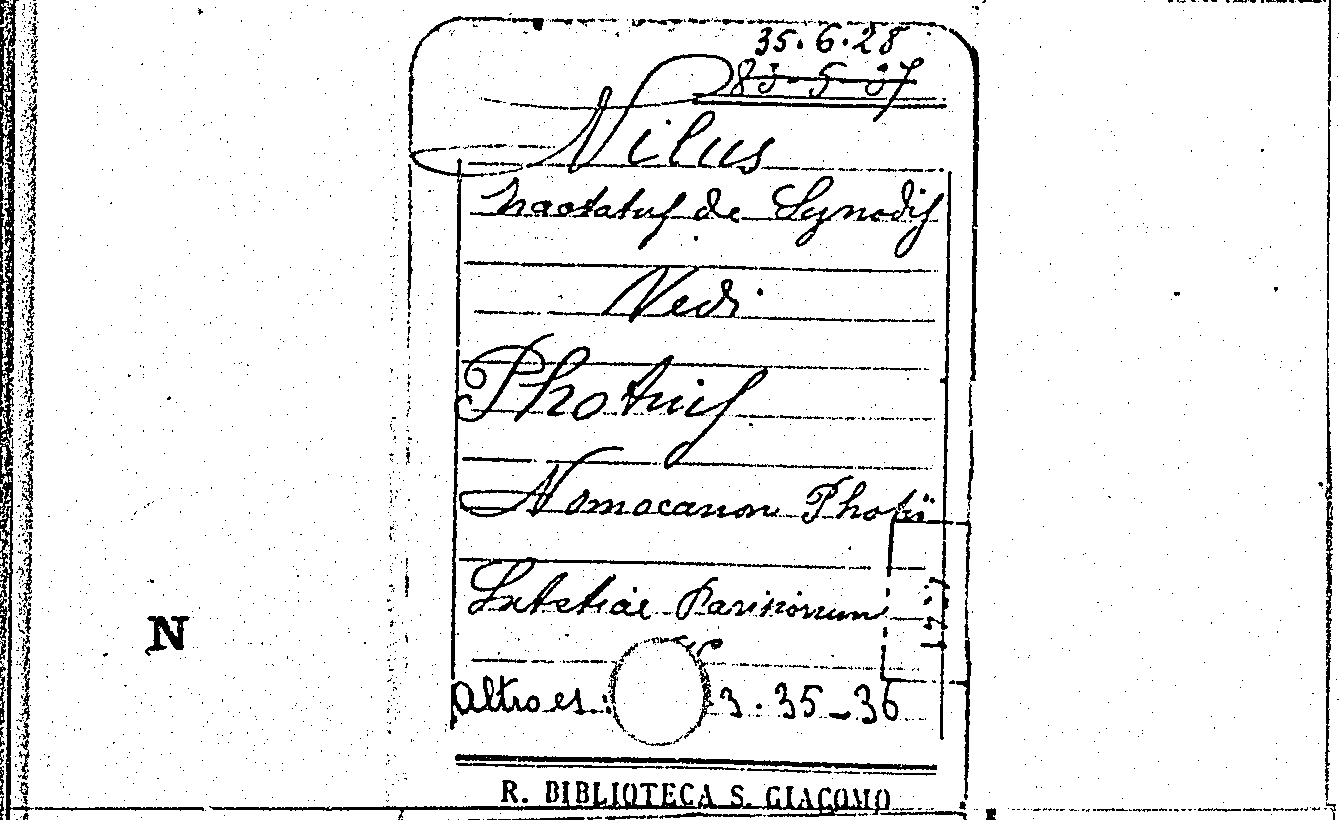 35.6.28
83-5-37
Nilus
Tractatus de Synodis
Vedi
Photius
Nomocanon Photii
Lutetiae Parisiorum
Altro es.: 3.35-36
R. BIBLIOTECA S. GIACOMO
N